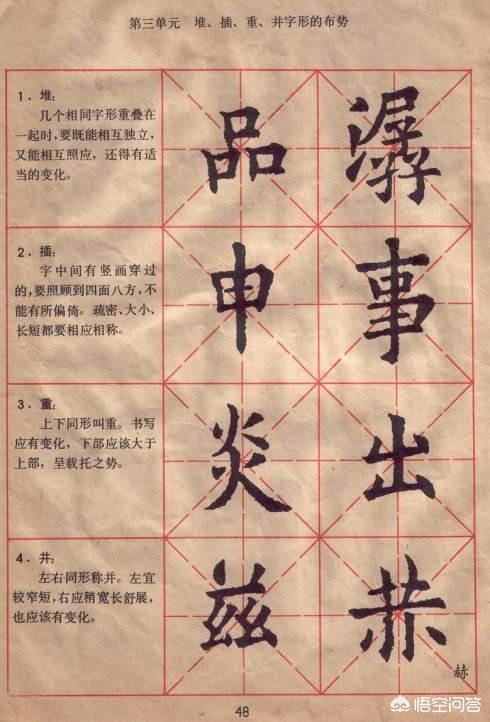 第三单元 堆、插、重、并字形的布势
1．堆：
几个相同字形重叠在
一起时，要既能相互独立，
又能相互照应，还得有适
当的变化。
品 潺
2．插：
字中间有竖画穿过
的，要照顾到四面八方，不
能有所偏倚。疏密、大小、
长短都要相应相称。
申 事
3．重：
上下同形叫重。书写
应有变化，下部应该大于
上部，呈载托之势。
炎 出
4．并：
左右同形称并。左宜
较窄短，右应稍宽长舒展，
也应该有变化。
兹 赫
赫
48
悟空问答